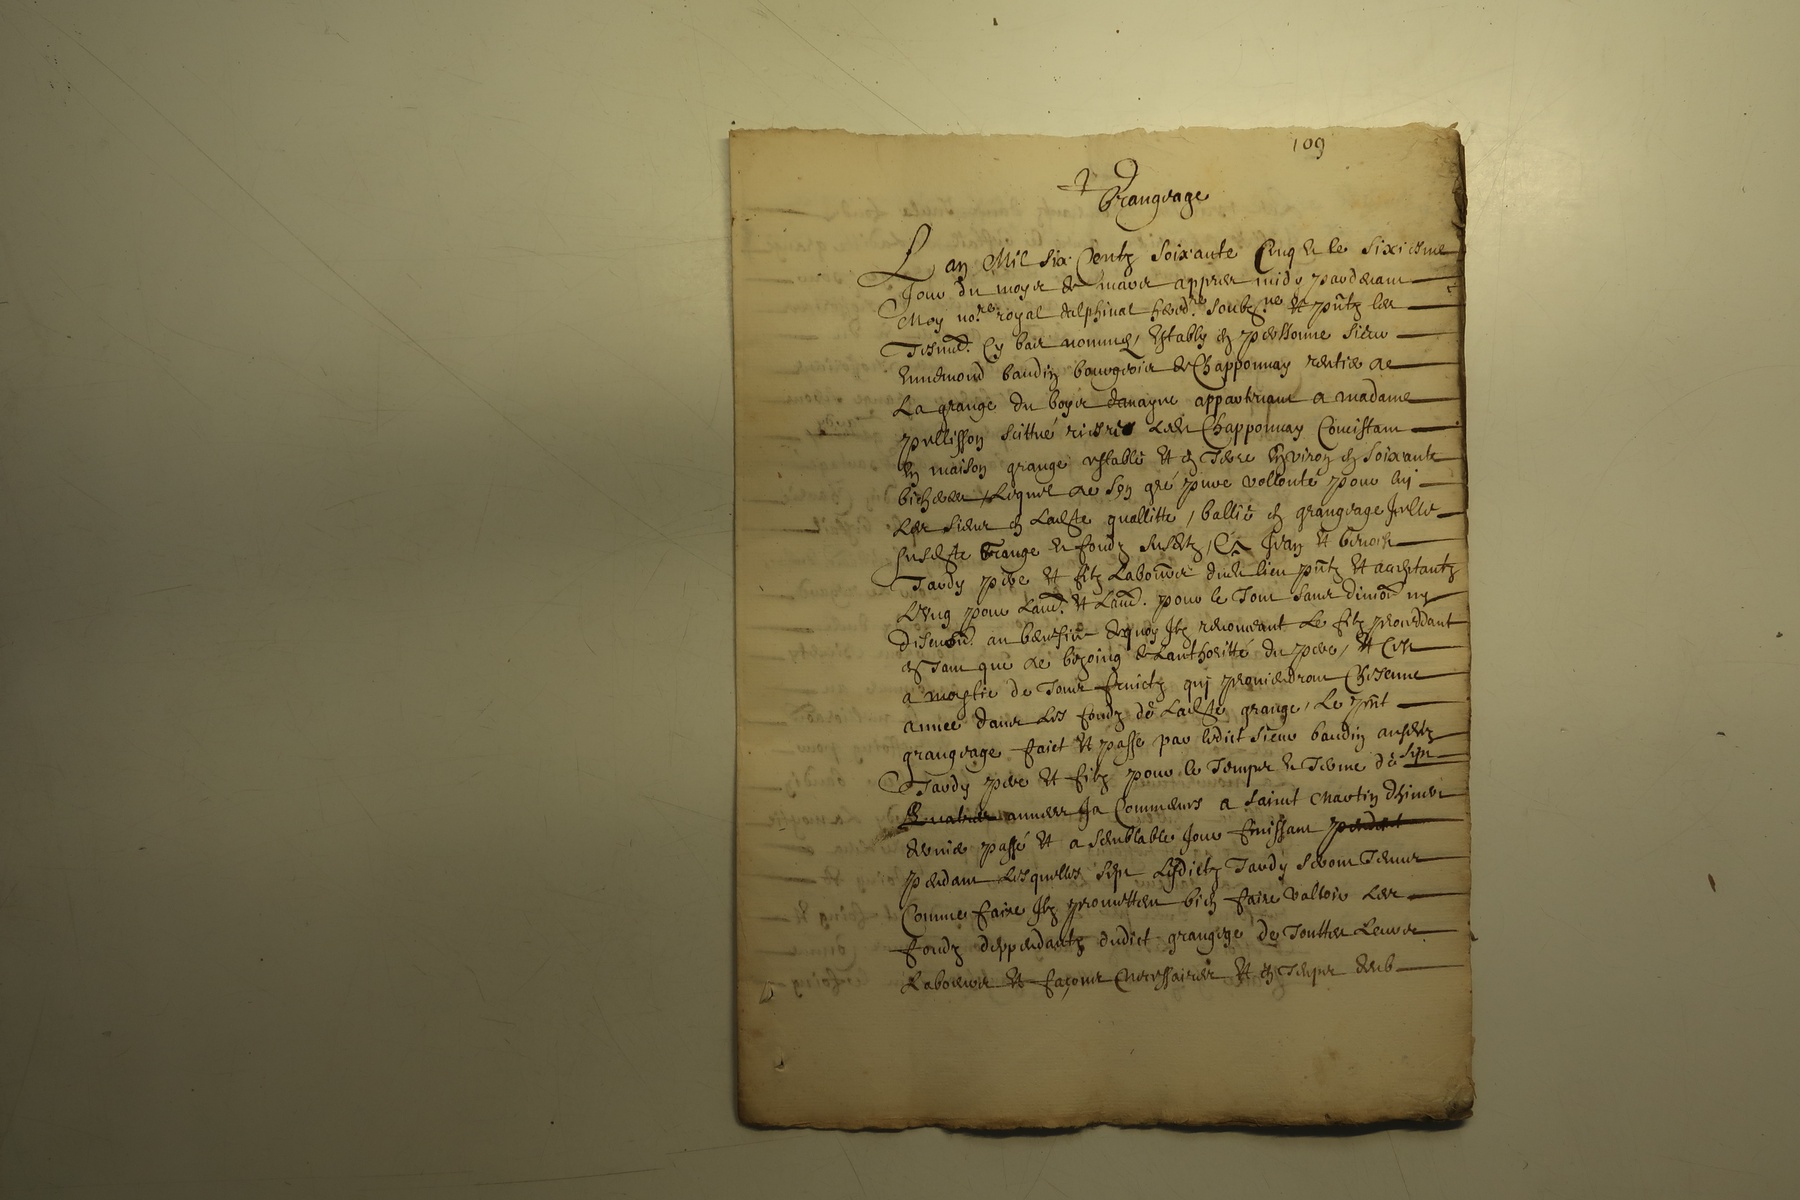 109
Grangeage
L an Mil six Centz Soixante Cinq & le sixiesme
Jour du moys de mars apprès midy pardevant
Moy no.re royal delphinal héréd.re soubz.né & pñtz les
Tesmo. Cy bas nommés, Estably en personne sieur
Ennemond baudin bourgeois de Chapponnay rentier de
La grange du boys appartenant a madame
pellisson scittué Chapponnay Concistant
En maison grange estable & en Terre Environ en soixante
bicherées, Lequel de son gré pure vollonté pour luy
Les sieur en Ladite quallitte, ballie en grangeage Jcelle
susdite Grange & fondz susditz, Ca Jean & benoist
Tardy pere & filz Laboureur dudit lieu pñtz & acceptantz
L'Vng pour Laut. & Laut. pour le Tout sans division ny
discution. au beneffice dequoy Jlz renoncent Le filz procedant
En Tant que de besoing de Lauthoritté du pere, & C'est
a moytie de Tous fruictz qui proviendront Chescune
année dans Les fondz de Ladite grange, Le pñt
grangeage faict & passé par ledict sieur baudin ausditz
Tardy pere & filz pour le Temps & Terme de sept
années Ja Commencés a saint Martin d'hiver
dernier passé & a semblable Jour finissant
pendant Lesquelles sept Lesdictz Tardy seront Tenus
Comme faire Jlz promettent bien faire valloir Les
fondz deppendantz dudict grangage de Touttes Leurs
Labeurs & façons Necessaires & en Temps deub